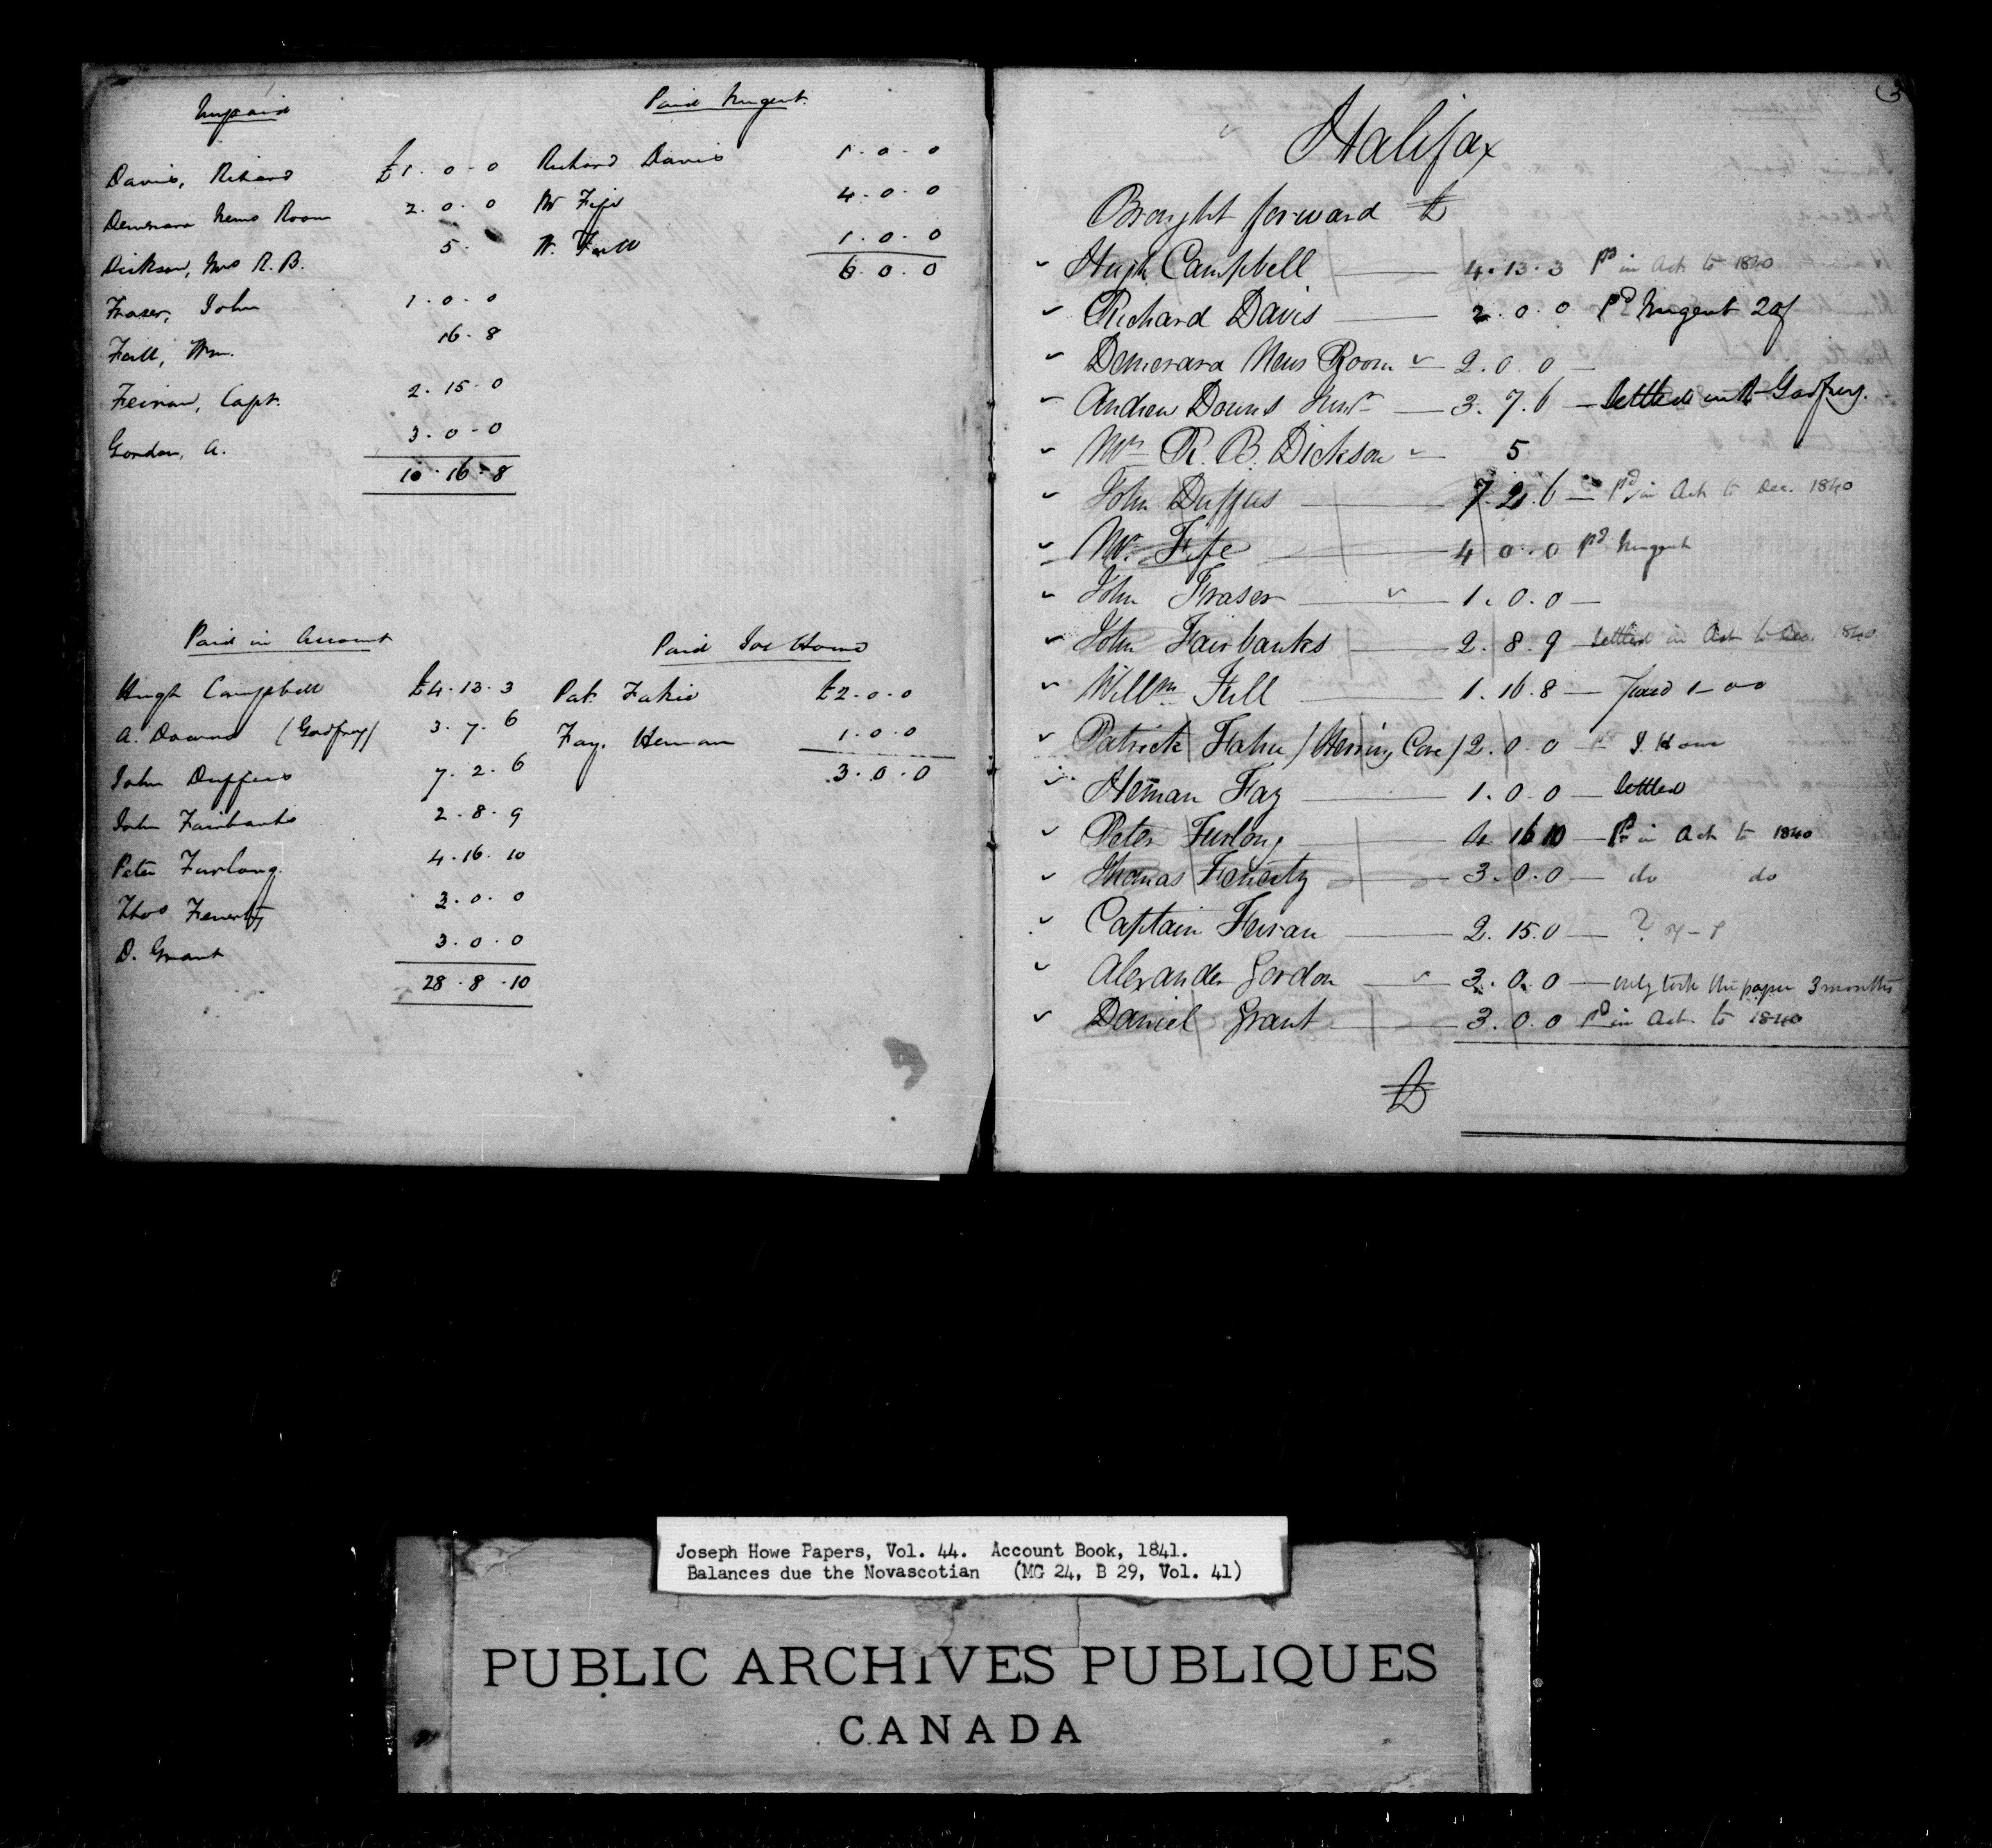 Unpaid
Davis, Richard £1.0.0
Demerara News Room 2.0.0
Dickson, Mrs R. B. 5.
Fraser, John 1.0.0
Full, Wm. 16.8
Feiran, Capt. 2.15.0
Gordon, A. 3.0.0
10.16.8
Paid Nugent.
Richard Davis 1.0.0
Mr Fife 4.0.0
W. Full 1.0.0
6.0.0
Paid in Account
Hugh Campbell £4.13.3
A. Downs (Godfrey) 3.7.6
John Duffus 7.2.6
John Fairbanks 2.8.9
Peter Furlong. 4.16.10
Thos Fenerty 3.0.0
D. Grant 3.0.0
28.8.10
Paid Jos Howe
Pat. Fahie £2.0.0
Fay. Heman 1.0.0
3.0.0
3
Halifax
Brought forward £
Hugh Campbell 4.13.3 pd in Act to 1840
Richard Davis 2.0.0 pd Nugent 20/
Demerara News Room 2.0.0
Andrew Downs Junr 3.7.6 Settled with Godfrey.
Mrs R. B. Dickson 5
John Duffus 7.2.6 pd in Act to Dec. 1840
Mr. Fife 4 0.0 pd Nugent
John Fraser 1.0.0
John Fairbanks 2.8.9 Settled in Act to Dec. 1840
Willm Full 1.16.8 paid 1-0-0
Patrick Fahie (Herring Cove) 2.0.0 J. Howe
Heman Fay 1.0.0 Settled
Peter Furlong 4 16 10 Pd in Act to 1840
Thomas Fenerty 3.0.0 do do
Captain Feiran 2.15.0 ?
Alexander Gordon 3.0.0 only took the paper 3 months
Daniel Grant 3.0.0 pd in Act to 1840
£
Joseph Howe Papers, Vol. 44. Account Book, 1841.
Balances due the Novascotian (MG 24, B 29, Vol. 41)
PUBLIC ARCHIVES PUBLIQUES
CANADA